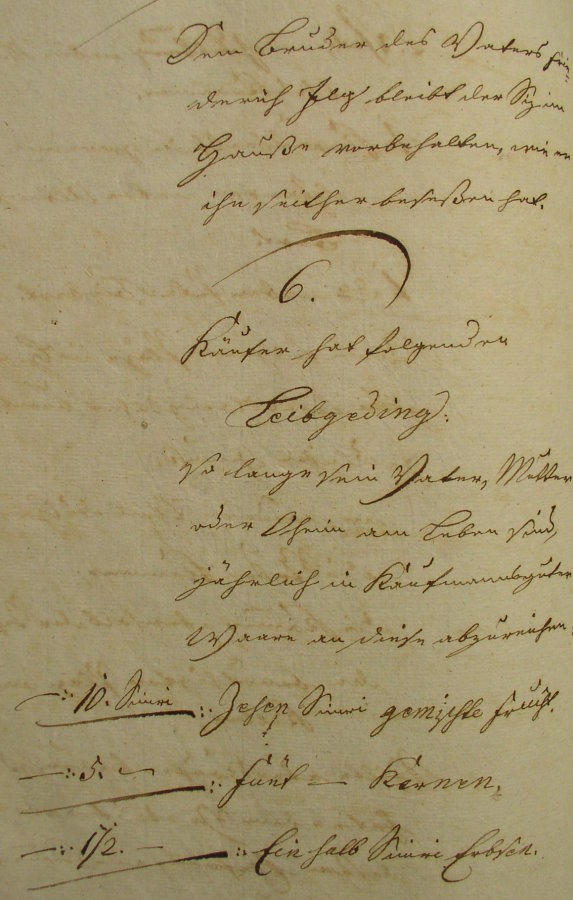 Dem Bruder des Vaters Frie-
derich Ilg bleibt der Siz im
Hauße vorbehalten, wie er
ihn seither beseßen hat.
6.
Käufer hat folgenden
Leibgeding:
so lange sein Vater, Mutter
oder Oheim am Leben sind,
jährlich in Kaufmannsguter
Waare an diese abzureichen:
10. Simri :: Zehen Simri gemischte Frucht.
5. — :: Fünf — Kernen.
1/2. — :: Ein halb Simri Erbsen.